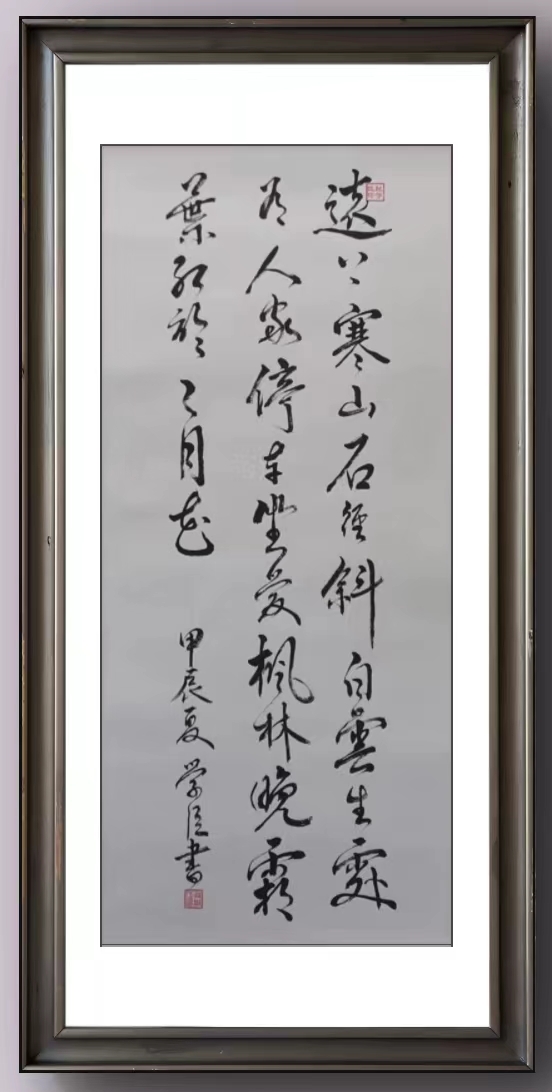 遠上寒山石徑斜白雲生處
有人家停車坐愛楓林晚霜
葉紅於二月花
甲辰夏学臣書